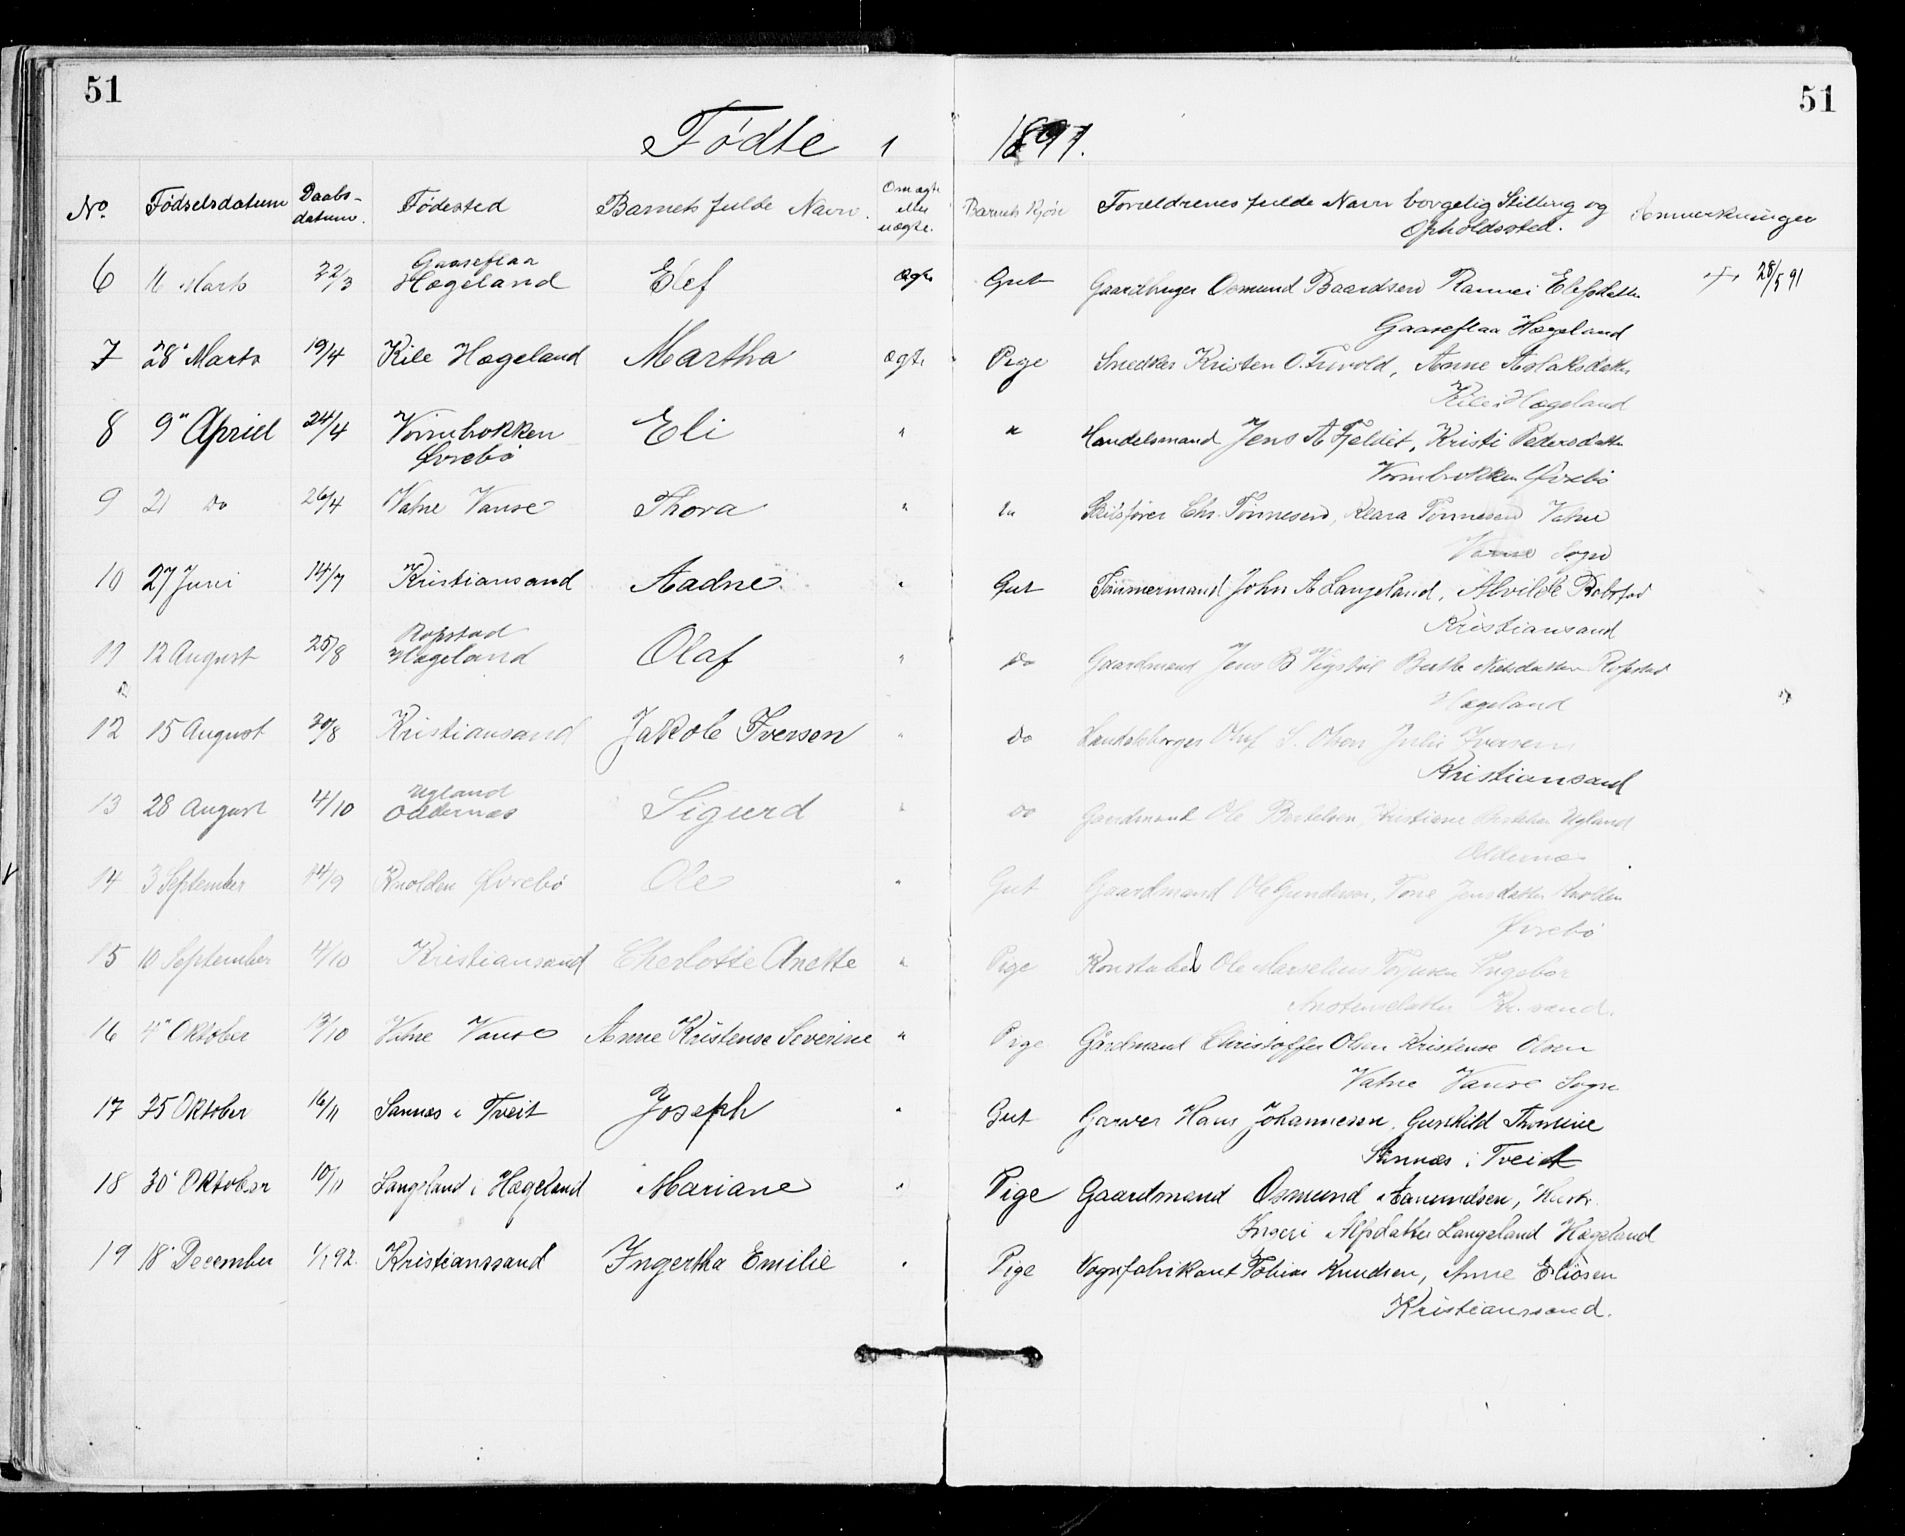 51
51
Fødte i 1891.
No. Fødselsdatum Daabs-datum. Fødested Barnets fulde Navn. Om ægte eller uægte. Barnets Kjøn Forældrenes fulde Navn borgelig Stilling og Opholdssted. Anmerkninger
6 11 Marts 22/3 Gaaseflaa Hægeland Elef ægte Gut Gaardbruger Osmund Baardsen Rannei Elefsdatter + 28/5 91
Gaaseflaa Hægeland
7 28' Marts 19/4 Kile Hægeland Martha ægte Pige Snedker Kristen O. Trivold, Anne Aslaksdatter
Kile i Hægeland
8 9" April 24/4 Vormbrokken Øvrebø Eli " " Handelsmand Jens A Fjeldet, Kristi Pedersdatter
Vormbrokken Øvrebø
9 21 do 26/4 Vatne Vanse Thora " " Skibsfører Chr. Tønnesen, Klara Tønnesen Vatne
Vanse Sogn
10 27 Juni 14/7 Kristiansand Aadne " Gut Tømmermand John A Langeland, Alvilde Robstad
Kristiansand
11 12 August 25/8 Ropstad Hægeland Olaf " Do Gaardmand Jens B Vigstøl Berthe Nilsdatter Ropstad
Hægeland
12 15 August 30/8 Kristiansand Jakob Iversen " Do Olaf S. Olsen Julie Iversen
Kristiansand
13 28 August 4/10 Ugland Oddernæs Sigurd " Do Gaardmand Ole Bertelsen, Kristiane Ugland
Oddernæs
14 3 September 14/9 Knolden Øvrebø Ole " Gut Gaardmand Ole Gundersen, Tone Jensdatter Knolden
Øvrebø
15 10 September 4/10 Kristiansand Cherlotte Anette " Pige Konstabel Ole Marselius Torjusen Ingebor
Kr.sand.
16 4" Oktober 13/10 Vatne Vanse Anne Kristense Severine " Pige Gårdmand Christoffer Olsen Kristense Olsen
Vatne Vanse Sogn
17 25 Oktober 16/11 Sannæs i Tveit Joseph " Gut Garver Hans Johannesen, Gunhild Thomine
Sannæs i Tveit
18 30' Oktober 10/11 Langeland i Hægeland Mariane " Pige Gaardmand Osmund Aamundsen, Hustr.
Alfsdatter Langeland Hægeland
19 18' December 1/1 92. Kristianssand Ingertha Emilie " Pige Vognfabrikant Tobias Knudsen, Anne Eliasen
Kristianssand.